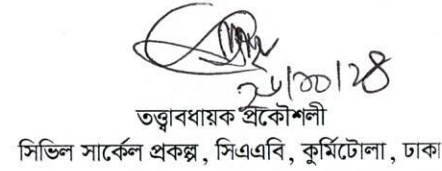 তত্ত্বাবধায়ক প্রকৌশলী
সিভিল সার্কেল প্রকল্প, সিএএবি, কুর্মিটোলা, ঢাকা